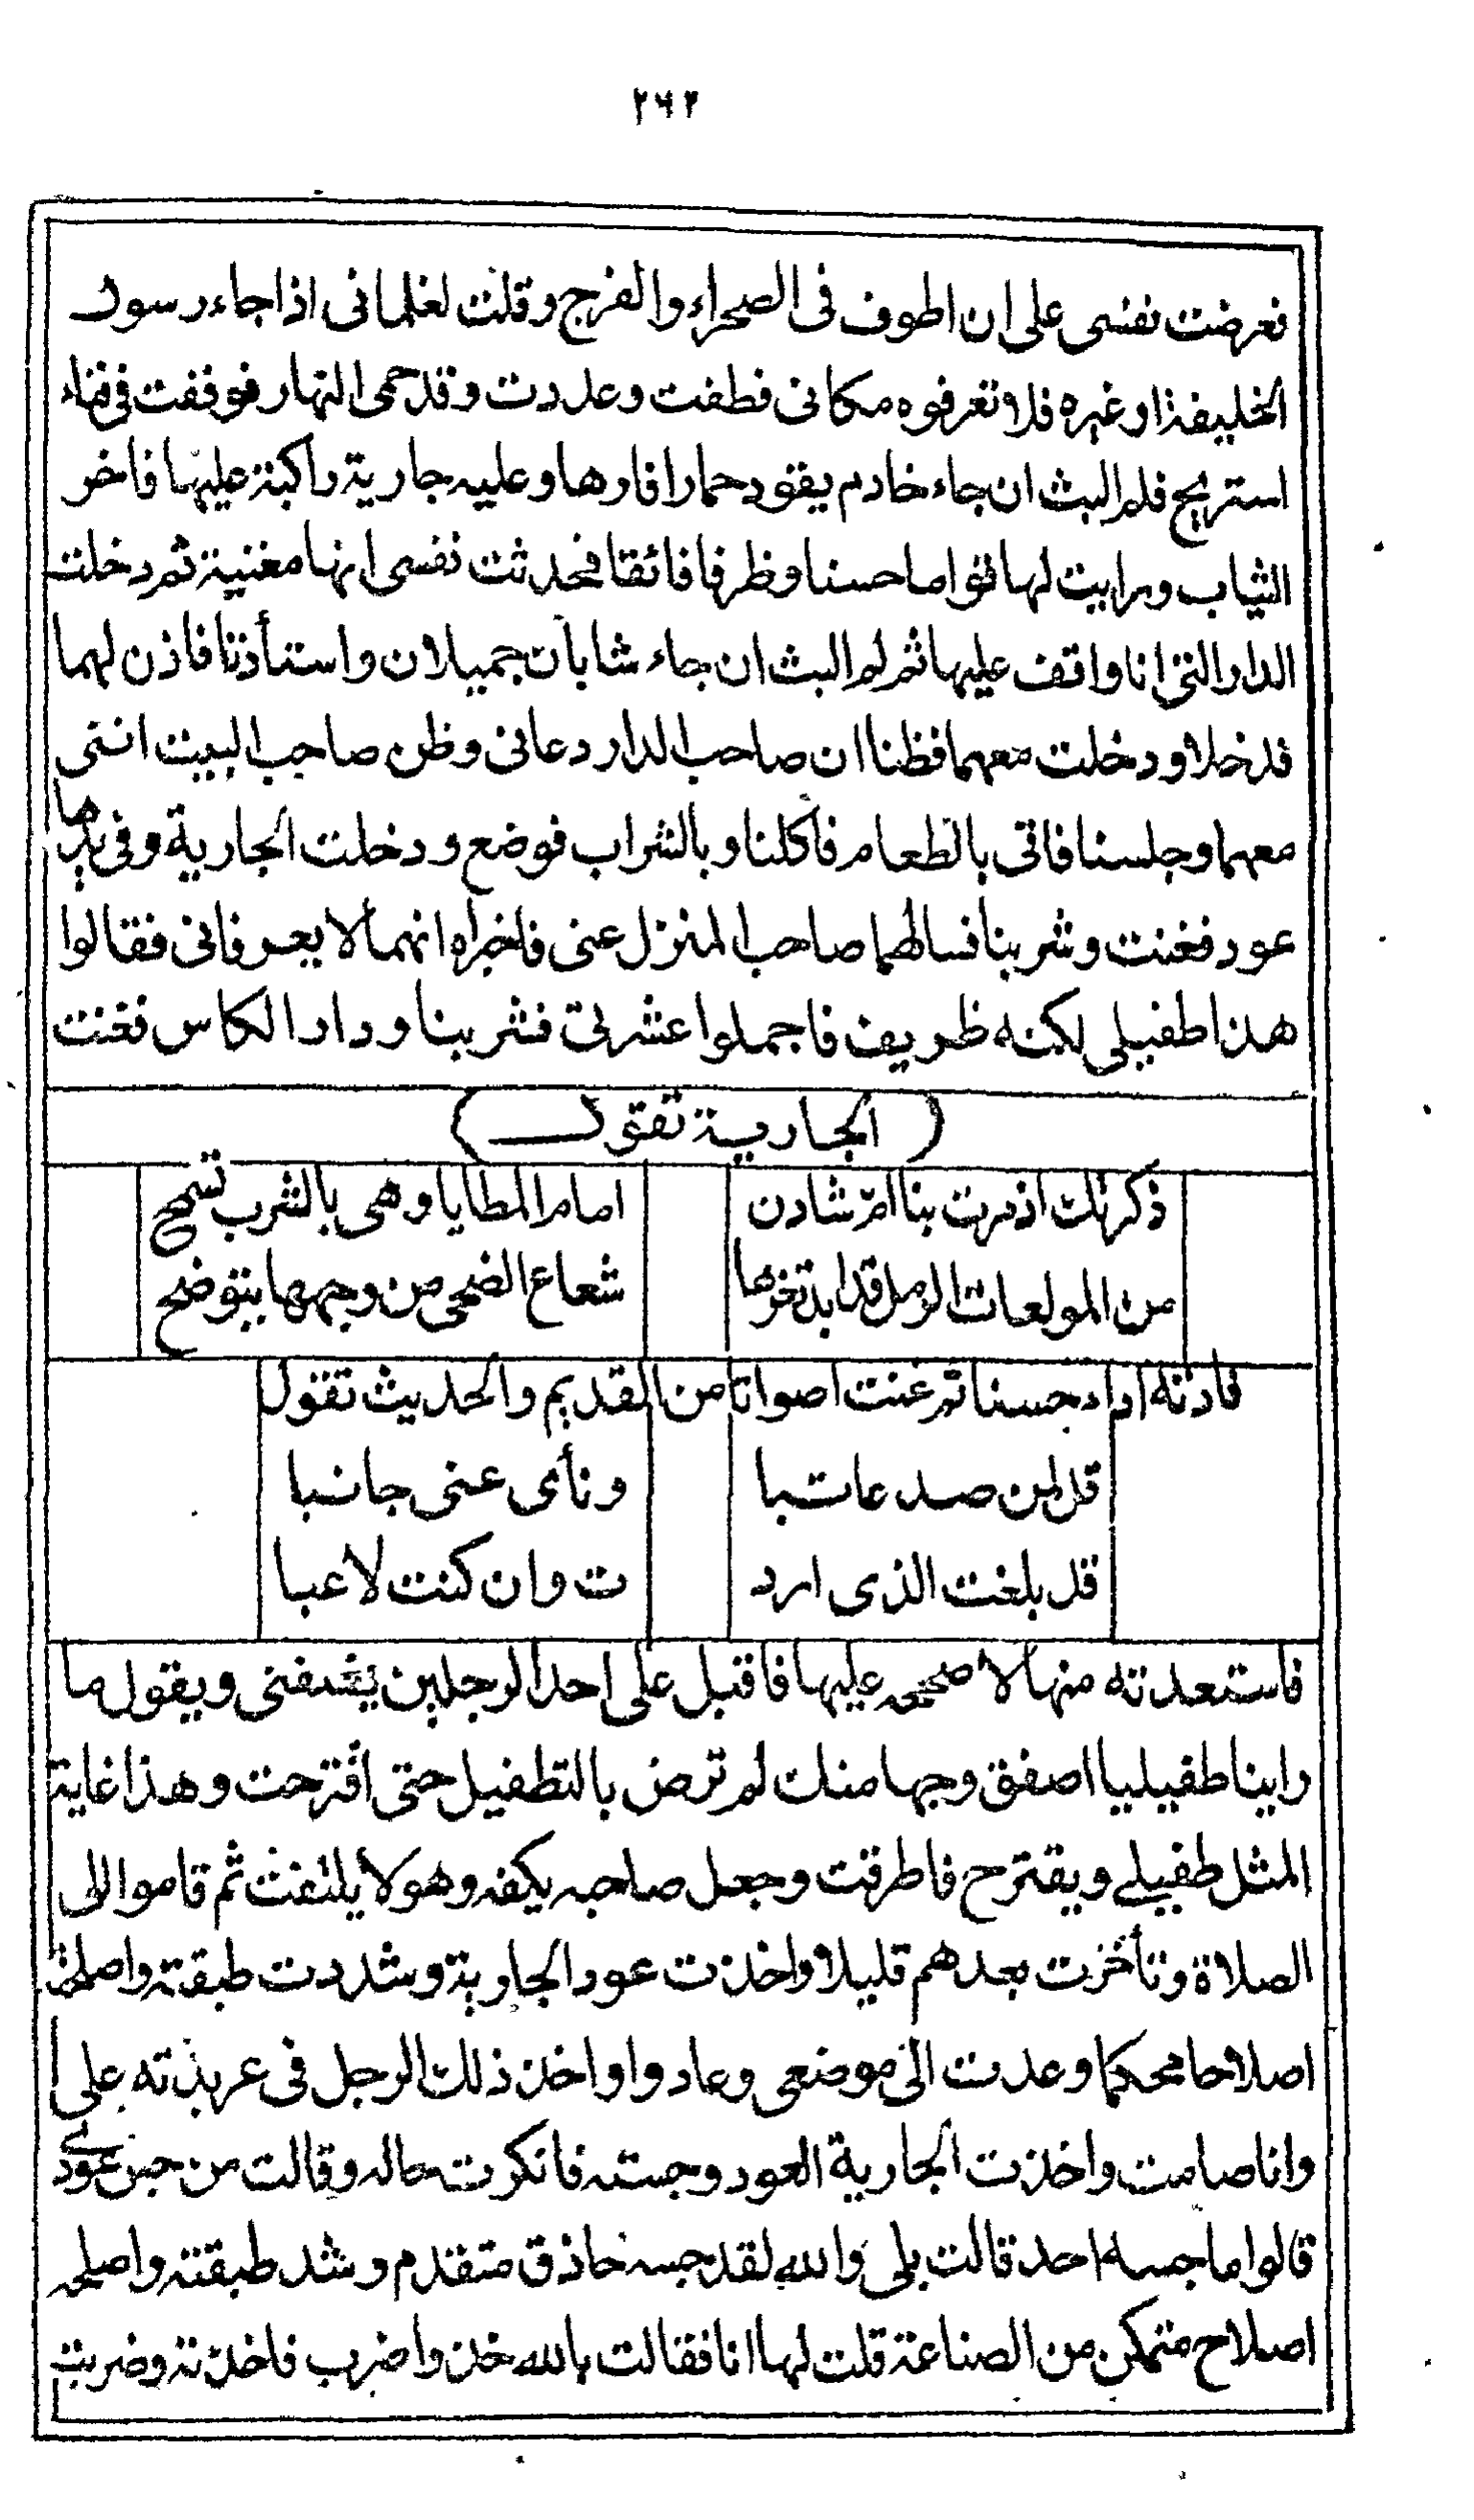 ٢٦٢
فعرضت نفسى على ان اطوف فى الصحراء والفرج وقلت لغلمانى اذا جاء رسول
الخليفة او غيره فلا تعرفوه مكانى فطفت وعددت وقد حمى النهار فوقفت فى فناء
استريح فلم البث ان جاء خادم يقود حمارا فارها وعليه جارية راكبة عليها فاخر
الثياب ورايت لها قواما حسنا وظرفا فائقا فحدثت نفسى انها مغنية ثم دخلت
الدار التى انا واقف عليها ثم لم البث ان جاء شابان جميلان واستأذنا فاذن لهما
فدخلا ودخلت معهما فظنا ان صاحب الدار دعانى وظن صاحب البيت اننى
معهما وجلسنا فاتى بالطعام فاكلنا وبالشراب فوضع ودخلت الجارية وفى يدها
عود فغنت وشربنا فسالهما صاحب المنزل عنى فاخبراه انهما لا يعرفانى فقالوا
هذا طفيلى لكنه ظريف فاجملوا عشرتى فشربنا ودار الكاس فغنت
( الجارية تقول )
ذكرتك اذ مرت بنا ام شادن امام المطايا وهى بالشرب تسمح
من المولعات الرمل قد ابدت نحرها شعاع الضحى من وجهها يتوضح
فادته اداء حسنا ثم غنت اصواتا من القديم والحديث تقول
قل لمن صد عاتبا ونأى عنى جانبا
قد بلغت الذى ارد ت وان كنت لاعبا
فاستعدته منها لاصححه عليها فاقبل على احد الرجلين يشفنى ويقول ما
راينا طفيليا اصفق وجها منك لم ترض بالتطفيل حتى اقترحت وهذا غاية
المثل طفيلى ويقترح فاطرقت وجعل صاحبه يكفه وهو لا يلتفت ثم قاموا الى
الصلاة وتأخرت بعدهم قليلا واخذت عود الجارية وشددت طبقته واصلحته
اصلاحا محكما وعدت الى موضعى وعادوا واخذ ذلك الرجل فى عربدته على
وانا صامت واخذت الجارية العود وجسته فانكرت حاله وقالت من جس عودى
قالوا ما جسه احد قالت بلى والله لقد جسه حاذق متقدم وشد طبقته واصلحه
اصلاح متمكن من الصناعة قلت لها انا فقالت بالله خذ واضرب فاخذته وضربت